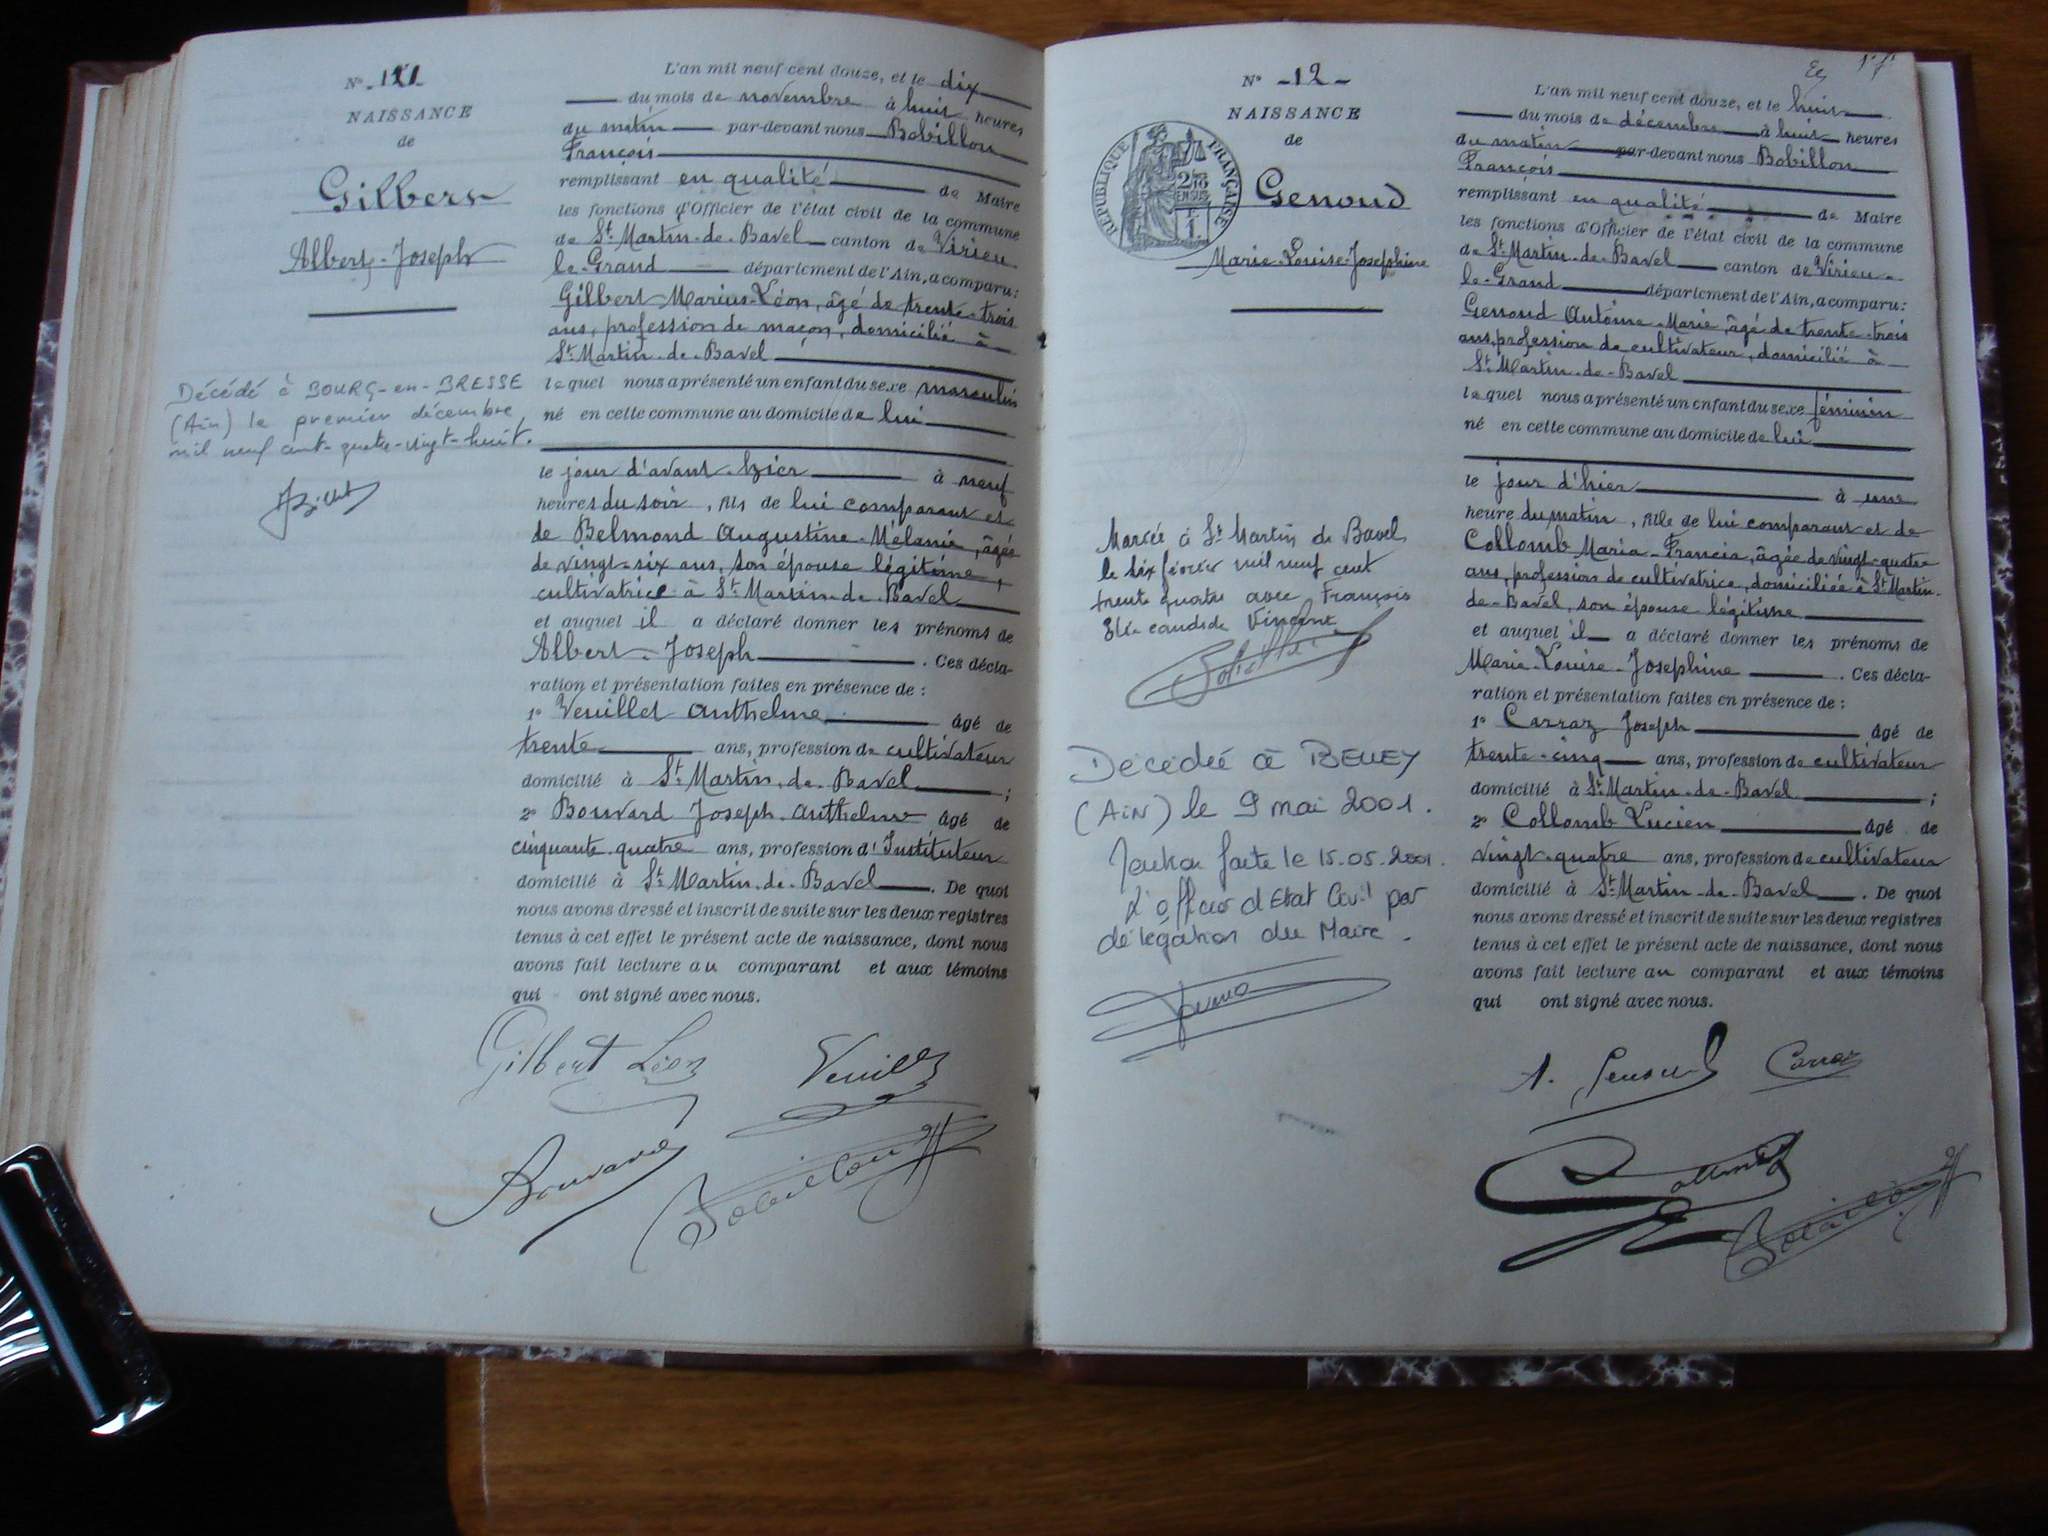 N°
NAISSANCE
de
Gilbert
Albert-Joseph
Décédé à BOURG-en-BRESSE
(Ain) le premier décembre
mil neuf cent-quatre-vingt-huit.
L'an mil neuf cent douze, et le dix
du mois de novembre à huit heures
du matin par-devant nous Bobillon
François
remplissant en qualité de Maire
les fonctions d'Officier de l'état civil de la commune
de St Martin-de-Bavel canton de Virieu-
le-Grand département de l'Ain, a comparu:
Gilbert Marius-Léon, âgé de trente-trois
ans, profession de maçon, domicilié à
St Martin-de-Bavel
lequel nous a présenté un enfant du sexe masculin
né en cette commune au domicile de lui
le jour d'avant-hier à neuf
heures du soir, fils de lui comparant et
de Belmond Augustine-Mélanie, âgée
de vingt-six ans, son épouse légitime,
cultivatrice à St Martin-de-Bavel
et auquel il a déclaré donner les prénoms de
Albert-Joseph. Ces décla-
ration et présentation faites en présence de :
1° Veuillet Anthelme âgé de
trente ans, profession de cultivateur
domicilié à St Martin-de-Bavel ;
2° Bouvard Joseph-Anthelme âgé de
cinquante-quatre ans, profession d'Instituteur
domicilié à St Martin-de-Bavel. De quoi
nous avons dressé et inscrit de suite sur les deux registres
tenus à cet effet le présent acte de naissance, dont nous
avons fait lecture au comparant et aux témoins
qui ont signé avec nous.
Gilbert Léon
Bouvard
Bobillon
N° -12-
NAISSANCE
de
REPUBLIQUE FRANÇAISE
Genoud
Marie-Louise-Josephine
Mariée à St Martin de Bavel
le six février mil neuf cent
trente quatre avec François
Vincent
Décédée à BELLEY
(AIN) le 9 mai 2001.
faite le 15.05.2001.
L'officier d'Etat Civil par
délégation du Maire.
L'an mil neuf cent douze, et le huit
du mois de décembre à huit heures
du matin par-devant nous Bobillon
François
remplissant en qualité de Maire
les fonctions d'Officier de l'état civil de la commune
de St Martin-de-Bavel canton de Virieu-
le-Grand département de l'Ain, a comparu:
Genoud Antoine-Marie, âgé de trente-trois
ans, profession de cultivateur, domicilié à
St Martin-de-Bavel
lequel nous a présenté un enfant du sexe féminin
né en cette commune au domicile de lui
le jour d'hier à une
heure du matin, fille de lui comparant et de
Collomb Maria-Francia, âgée de vingt-quatre
ans, profession de cultivatrice, domiciliée à St Martin-
de-Bavel, son épouse légitime
et auquel il a déclaré donner les prénoms de
Marie-Louise-Josephine. Ces décla-
ration et présentation faites en présence de :
1° Carraz Joseph âgé de
trente-cinq ans, profession de cultivateur
domicilié à St Martin-de-Bavel ;
2° Collomb Lucien âgé de
vingt-quatre ans, profession de cultivateur
domicilié à St Martin-de-Bavel. De quoi
nous avons dressé et inscrit de suite sur les deux registres
tenus à cet effet le présent acte de naissance, dont nous
avons fait lecture au comparant et aux témoins
qui ont signé avec nous.
A. Genoud
Bobillon